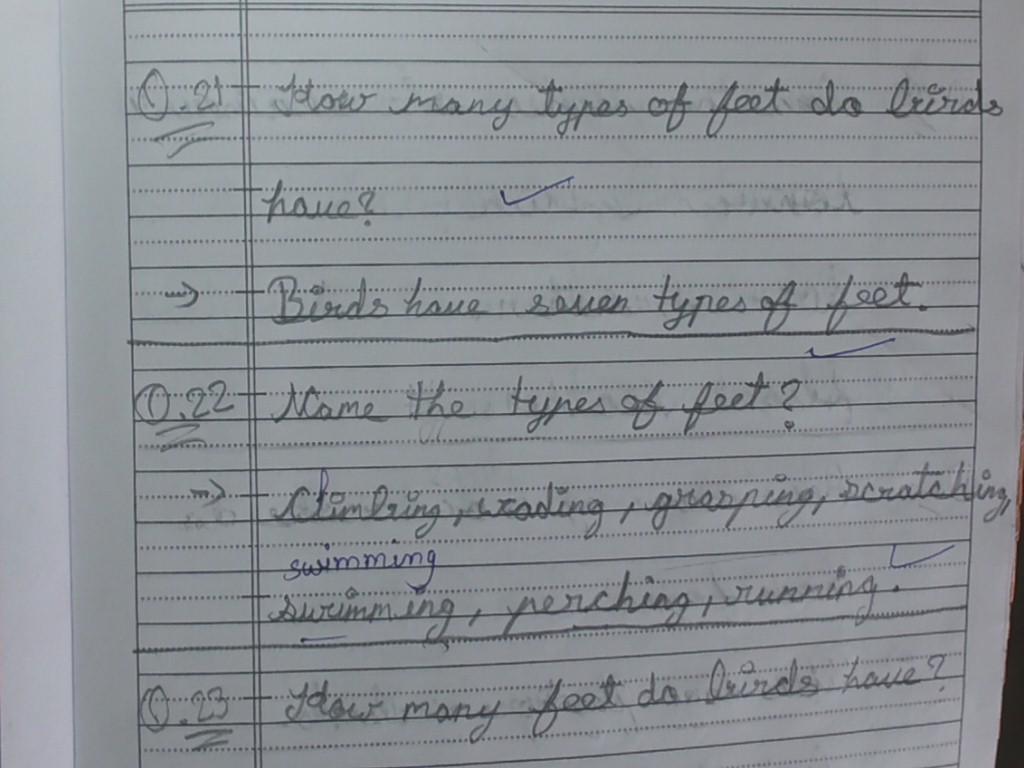 Q.21 How many types of feet do birds
have?
→ Birds have seven types of feet.
Q.22 Name the types of feet?
→ Climbing, wading, grasping, scratching,
swimming
swimming, perching, running.
Q.23 How many feet do birds have?